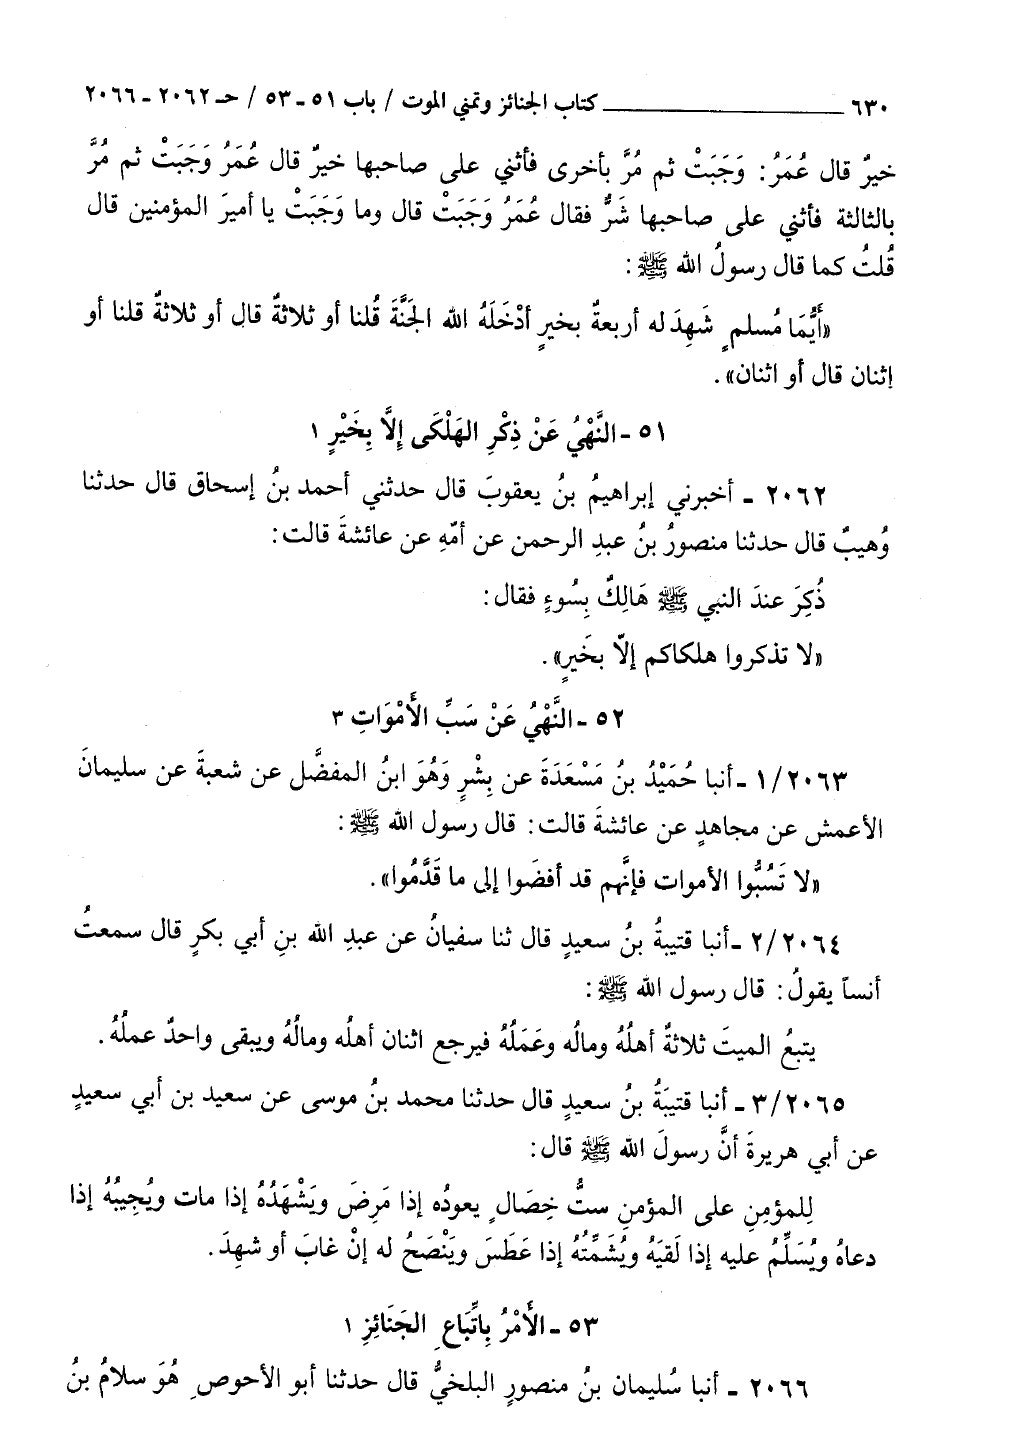 ٦٣٠ ــــــــــــ كتاب الجنائز وتمني الموت / باب ٥١ ـ ٥٣ / حـ ٢٠٦٢ ـ ٢٠٦٦
خيرٌ قال عُمَرُ: وَجَبَتْ ثم مُرَّ بأخرى فأثني على صاحبها خيرٌ قال عُمَرُ وَجَبَتْ ثم مُرَّ
بالثالثة فأثني على صاحبها شَرٌّ فقال عُمَرُ وَجَبَتْ قال وما وَجَبَتْ يا أميرَ المؤمنين قال
قُلتُ كما قال رسولُ الله ﷺ:
«أَيُّمَا مُسلمٍ شَهِدَ له أربعةٌ بخيرٍ أدْخَلَهُ الله الجَنَّةَ قُلنا أو ثلاثةٌ قال أو ثلاثةٌ قلنا أو
إثنان قال أو اثنان».
٥١ ـ النَّهْيُ عَنْ ذِكْرِ الهَلْكَى إِلَّا بِخَيْرٍ ١
٢٠٦٢ ـ أخبرني إبراهيمُ بنُ يعقوبَ قال حدثني أحمد بنُ إسحاق قال حدثنا
وُهيبٌ قال حدثنا منصورُ بنُ عبدِ الرحمن عن أمّهِ عن عائشةَ قالت:
ذُكِرَ عندَ النبي ﷺ هَالِكٌ بِسُوءٍ فقال:
«لا تذكروا هلكاكم إلّا بخَيرٍ».
٥٢ ـ النَّهْيُ عَنْ سَبِّ الأَمْوَاتِ ٣
١/٢٠٦٣ ـ أنبا حُمَيْدُ بنُ مَسْعَدَةَ عن بِشْرٍ وَهُوَ ابنُ المفضَّل عن شعبةَ عن سليمانَ
الأعمش عن مجاهدٍ عن عائشةَ قالت: قال رسول الله ﷺ:
«لا تَسُبُّوا الأموات فإنَّهم قد أفضَوا إلى ما قَدَّمُوا».
٢/٢٠٦٤ ـ أنبا قتيبةُ بنُ سعيدٍ قال ثنا سفيانُ عن عبدِ الله بنِ أبي بكرٍ قال سمعتُ
أنساً يقولُ: قال رسول الله ﷺ:
يتبعُ الميتَ ثلاثةٌ أهلُهُ ومالُه وعَمَلُهُ فيرجع اثنان أهلُه ومالُهُ ويبقى واحدٌ عملُهُ.
٣/٢٠٦٥ ـ أنبا قتيبَةُ بنُ سعيدٍ قال حدثنا محمد بنُ موسى عن سعيد بن أبي سعيدٍ
عن أبي هريرةَ أنَّ رسولَ الله ﷺ قال:
لِلمؤمِنِ على المؤمنِ ستُّ خِصَالٍ يعودُه إذا مَرِضَ ويَشْهَدُهُ إذا مات ويُجِيبُهُ إذا
دعاهُ ويُسَلِّمُ عليه إذا لَقيَهُ ويُشَمِّتُهُ إذا عَطَسَ ويَنْصَحُ له إنْ غابَ أو شهِدَ.
٥٣ ـ الأَمْرُ بِاتِّبَاعِ الجَنَائِزِ ١
٢٠٦٦ ـ أنبا سُليمان بنُ منصورٍ البلخيُّ قال حدثنا أبو الأحوصِ هُوَ سلامُ بنُ